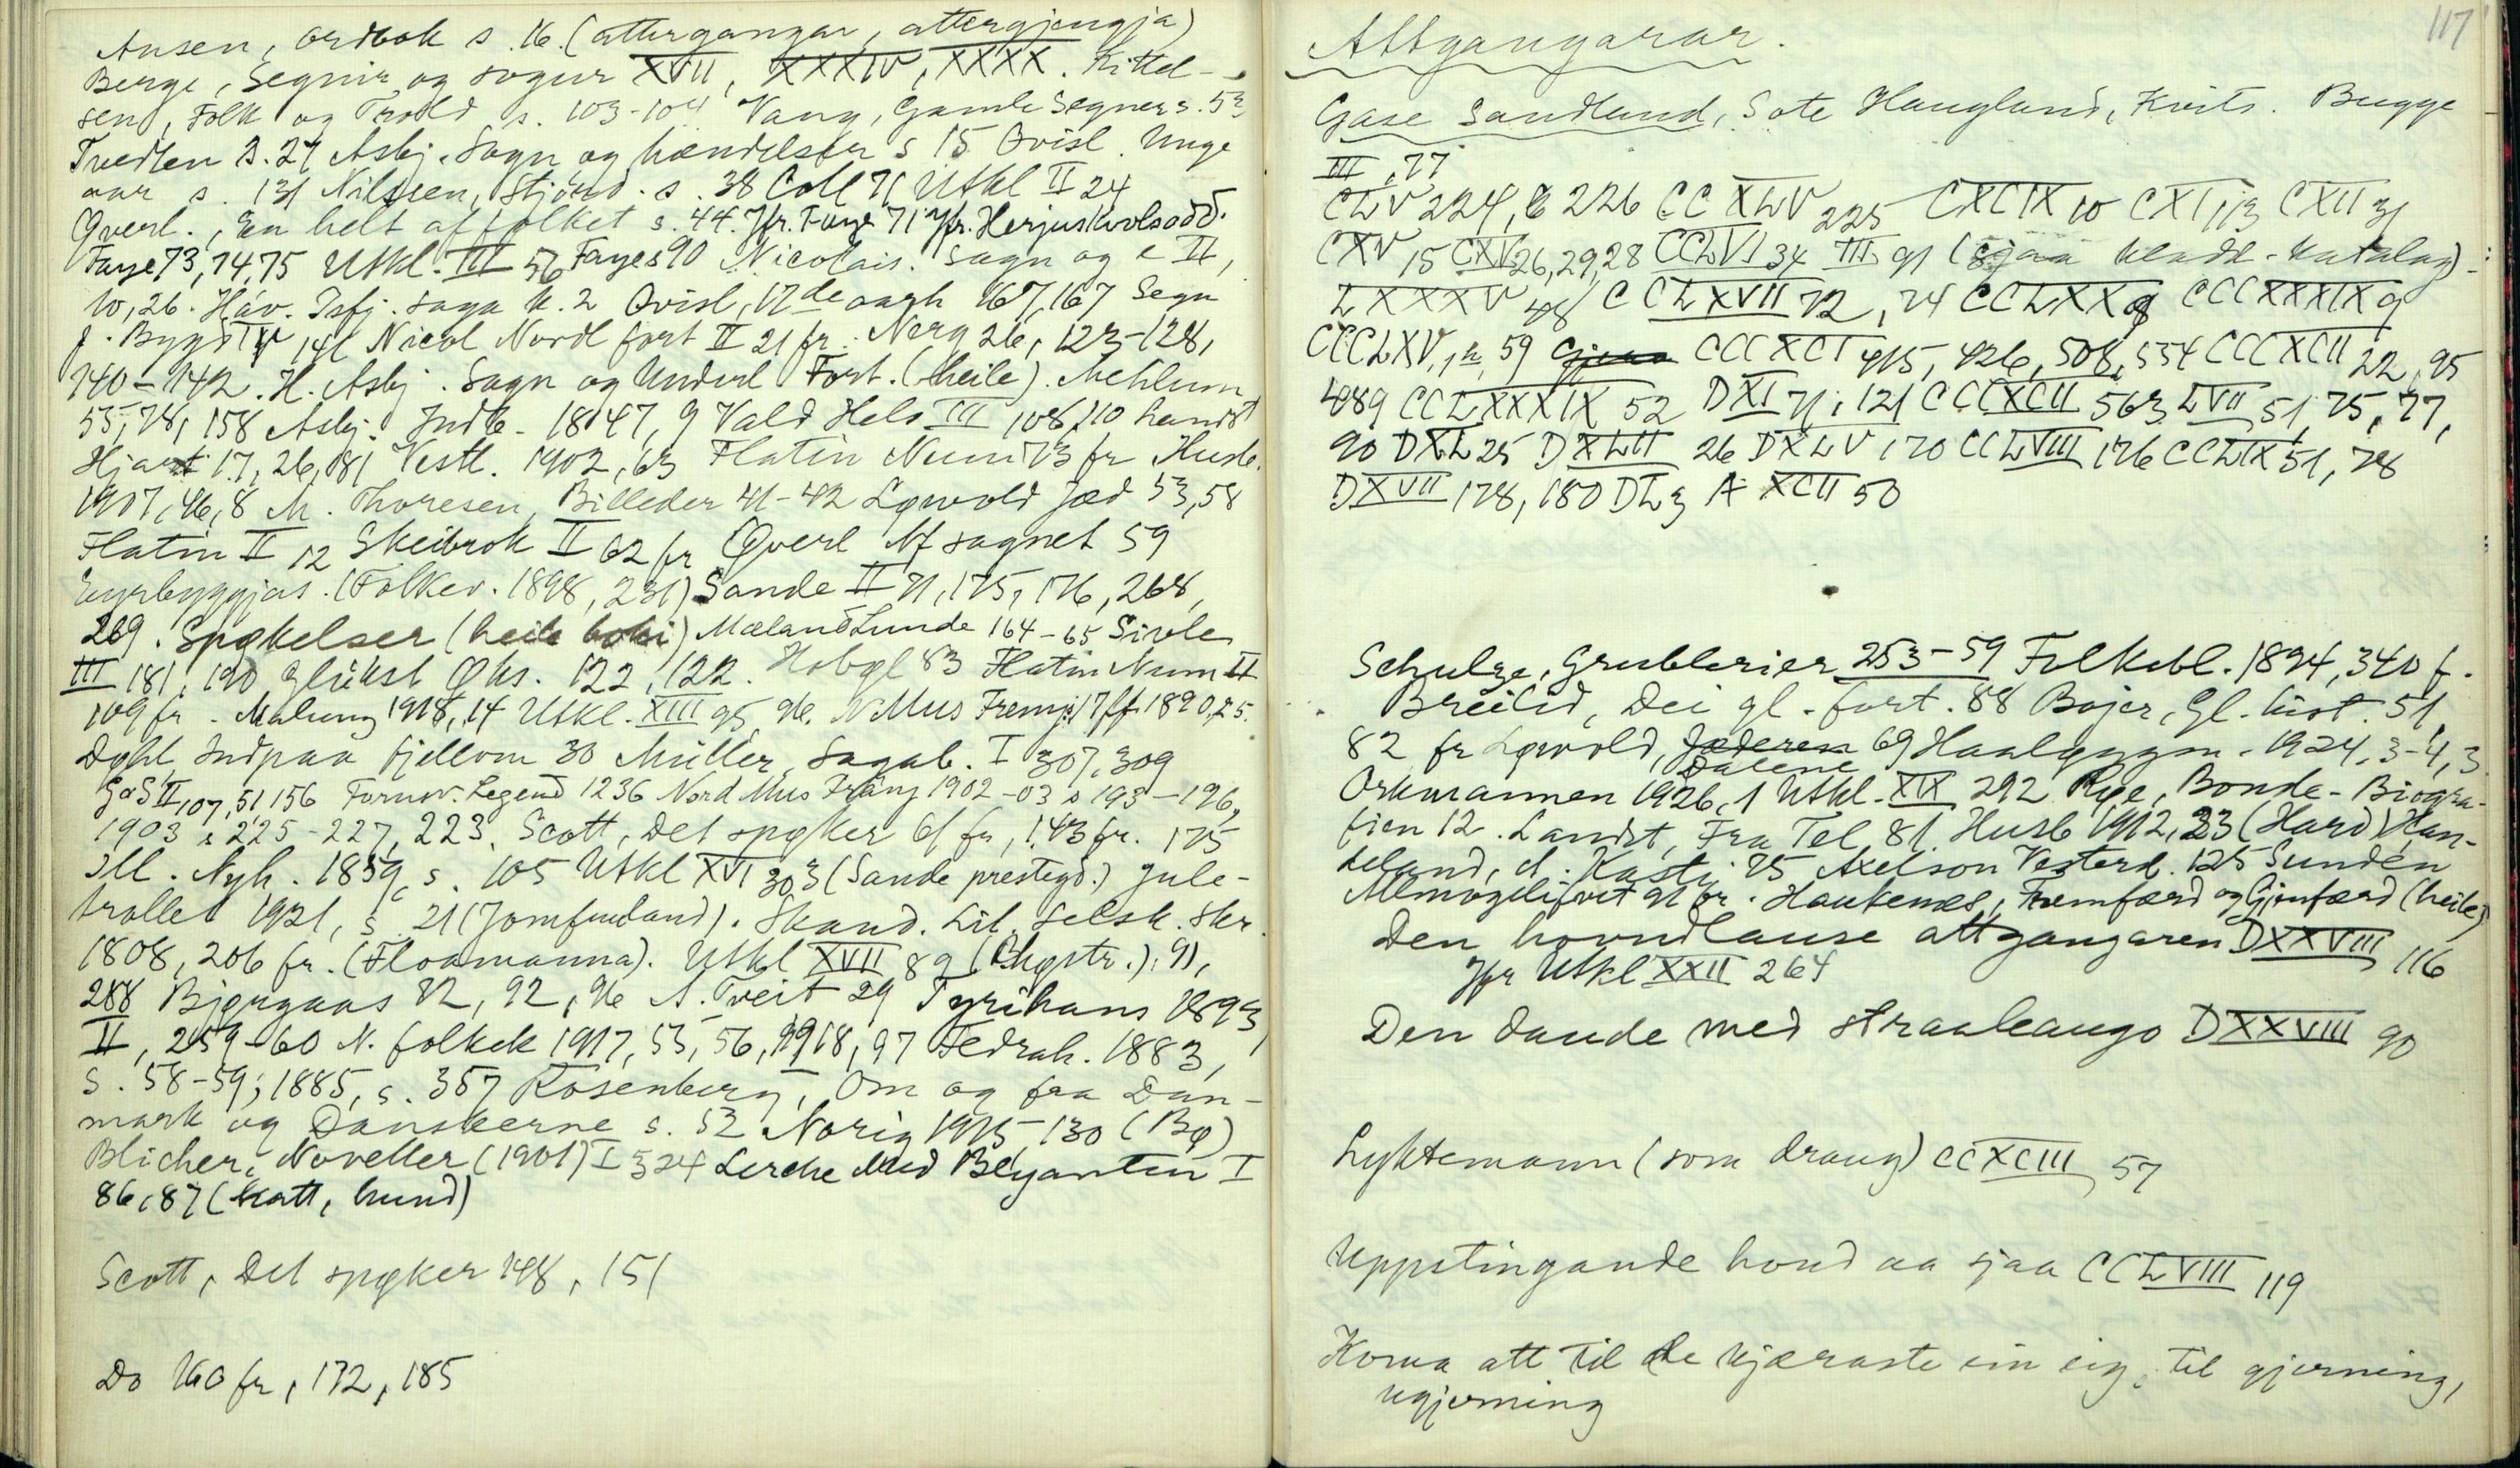 Aasen, Ordbok s. 16. (attergangar, attergjengja)
Berge, Segnir og sogur XVII, XXXIV, XXXX. Kittel-
sen, Folk og Trold s. 103-104 Vang, Gamle Segner s. 53
Tvedten s. 27 Asbj. Sagn og hændelser s 15 Qvisl. Unge
aar s. 131 Nilssen, Stjørd. s. 38 Coll 71 Utkl II 24
Qverl., En helt af folket s. 44. Jfr. Faye 71 Jfr. Herjus Kvolsodd.
Faye 73, 74, 75 Utkl. III 56 Faye s 90 Nicolais. Sagn og e II,
10, 26. Háv. Isfj. saga k. 2 Qvisl, 17de aarh 167, 167 Segn
f. Bygd IV 141 Nicol Nordl fort II 21 fr. Norg 26, 123-128,
140-142. H. Asbj. Sagn og Underl Fort. (heile). Mehlum
55, 78, 158 Asbj. Indb. 1847, 9 Vald Hels III 108, 110 Landst
Hjart 17, 26, 81 Vestl. 1902, 63 Flatin Num 73 fr Husb.
1907, 46, 8 M. Thoresen, Billeder 41-42 Løvold Jæd 53, 58
Flatin II 12 Skeibrok II 62 fr Qverl Af sagnet 59
Eyrbyggjas. (Folkev. 1898, 231) Sande II 71, 175, 176, 268,
269. Spøkelser (heile boki) Mæland Lunde 164-65 Sivle
III 181, 190 Glükst Øks. 122, 122. Hobøl 83 Flatin Num II
109 fr. Malung 1918, 14 Utkl. XIII 95, 96. N Mus Fremj. 17 ff 1890, 25.
Dahl Indpaa fjellom 30 Müller, Sagab. I 307, 309
GaS II, 107, 51, 156 Fornsv. Legend 1236 Nord Mus Fräng 1902-03 s 193-196,
1903 s 225-227, 223. Scott, Det spøker 61 fr, 143 fr. 175
Ill. Nyh. 1859, s. 105 Utkl XVI 303 (Sande prestegd.) Jule-
trollet 1921, s. 21 (Jomfruland). Skand. Lit. Selsk. Skr.
1808, 206 fr. (Floamanna). Utkl XVII 89 (Bhgstr.), 91,
288 Bjørgaas 12, 92, 96 A. Tveit 29 Tyrihans 1893,
II, 259-60 N. folkek 1917, 55, 56, 1918, 97 Fedrah. 1883,
s. 58-59; 1885, s. 357 Rosenberg, Om og fra Dan-
mark og Danskerne s. 52 Norig 1915, 130 (Bø)
Blicher, Noveller (1901) I 324 Lerche Med Blyanten I
86, 87 (katt, hund)
Scott, Det spøker 148, 151
Do 160 fr, 172, 185
117
Attgangarar.
Gase Sandland, Sote Haugland, Kvits. Bugge
III, 77
CLV 224, 226 CCXLV 225 CXCIX 10 CXI 113 CXII 31
CXV 15 CXV 26, 29, 28 CCLVI 34 III 91 (sjaa handl-katalog)
LXXXV 48 CCLXVII 72, 74 CCLXX 9 CCCXXXIX 9
CCCLXV, 1h, 59 CCCXCI 415, 426, 508, 534 CCCXCII 22, 95
489 CCLXXXIX 52 DXI 71, 121 CCCXCII 563 LVII 51, 75, 77,
90 DXL 25 DXLII 26 DXLV 170 CCLVIII 176 CCLIX 51, 78
DXVII 178, 180 DL 3 A XCII 50
Schulze, Grublerier 253-59 Folkebl. 1894, 340 f.
Breilid, Dei gl. fort. 88 Bojer, Gl. hist. 51,
82 fr Løvold, Jæderen 69 Haaløygm. 1924, 3-4, 3
Dalene
Orkmannen 1926, 1 Utkl. XIX 292 Rye, Bonde-Biogra-
fien 12. Landst, Fra Tel 81. Husb 1912, 23 (Hard) Han-
deland, d. Kasti 75 Axelson Vesterd. 125 Sundén
Allmogelifvet 91 fr. Haukenæs, Fremfærd og Gjenfærd (heile)
Den hovudlause attgangaren DXXVIII 116
Jfr Utkl XXII 264
Den daude med straaleaugo DXXVIII 90
Lyktemann (som draug) CCXCIII 57
Uppstingande hond aa sjaa CCLVIII 119
Koma att til de kjæraste ein eig, til gjerning,
ugjerning